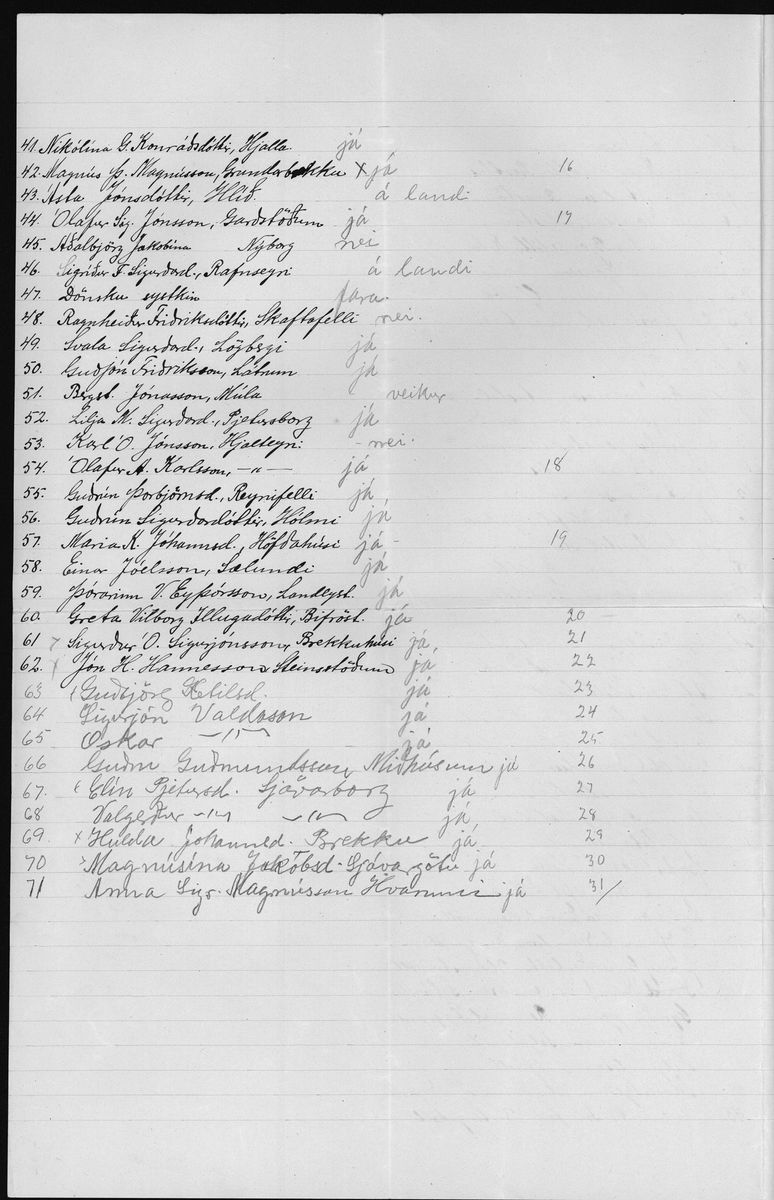 41. Nikólína G. Konráðsdóttir, Hjalla já
42. Magnús Þ. Magnússon, Grundarbrekku X já 16
43. Ásta Jónsdóttir, Hlíð. á landi
44. Ólafur Sig. Jónsson, Garðstöðum já 17
45. Aðalbjörg Jakobína Nýborg nei
46. Sigríður F. Sigurðard., Rafnseyri á landi
47. Dönsku systkin fara.
48. Ragnheiður Friðriksdóttir, Skaftafelli nei.
49. Svala Sigurðard., Lögbergi já
50. Guðjón Friðriksson, Látrum já
51. Bergst. Jónasson, Múla veikur
52. Lilja M. Sigurðard., Pjetursborg já
53. Karl O. Jónsson, Hjalleyri. - nei.
54. Ólafur A. Karlsson, -"- já 18
55. Guðrún Þorbjörnsd., Reynifelli já
56. Guðrún Sigurðardóttir, Hólmi já
57. María K. Jóhannsd., Höfðahúsi já - 19
58. Einar Jóelsson, Sælundi já
59. Þórarinn V. Eyþórsson, Landlyst. já
60. Greta Vilborg Illugadóttir, Bifröst. já 20
61 Sigurður O. Sigurjónsson, Brekkuhúsi já, 21
62. Jón H. Hannesson Steinsstöðum já 22
63 Guðbjörg Ketilsd. já 23
64 Sigurjón Valdason já 24
65 Oskar -"- já 25
66 Guðm Guðmundsson, Miðhúsum já 26
67. Elín Pjetursd. Sjávarborg já 27
68 Valgerður -"- -"- já 28
69. x Hulda Johannsd. Brekku já 29
70 Magnúsína Jakobsd. Sjávargötu já 30
71 Anna Sigr. Magnússon Hvammi já 31/